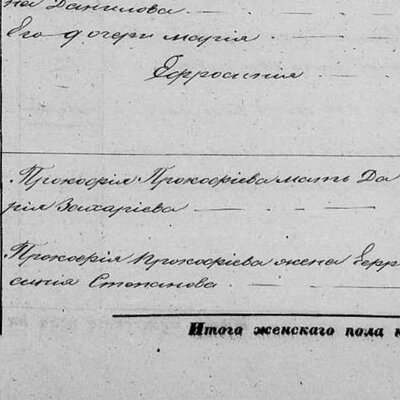 на Данилова
Его дочери Мария
Ефросиния
Прокофия Прокофиева мать Да
рия Захариева
Прокофия Прокофиева жена Ефр
синия Степанова
Итого женскаго пола